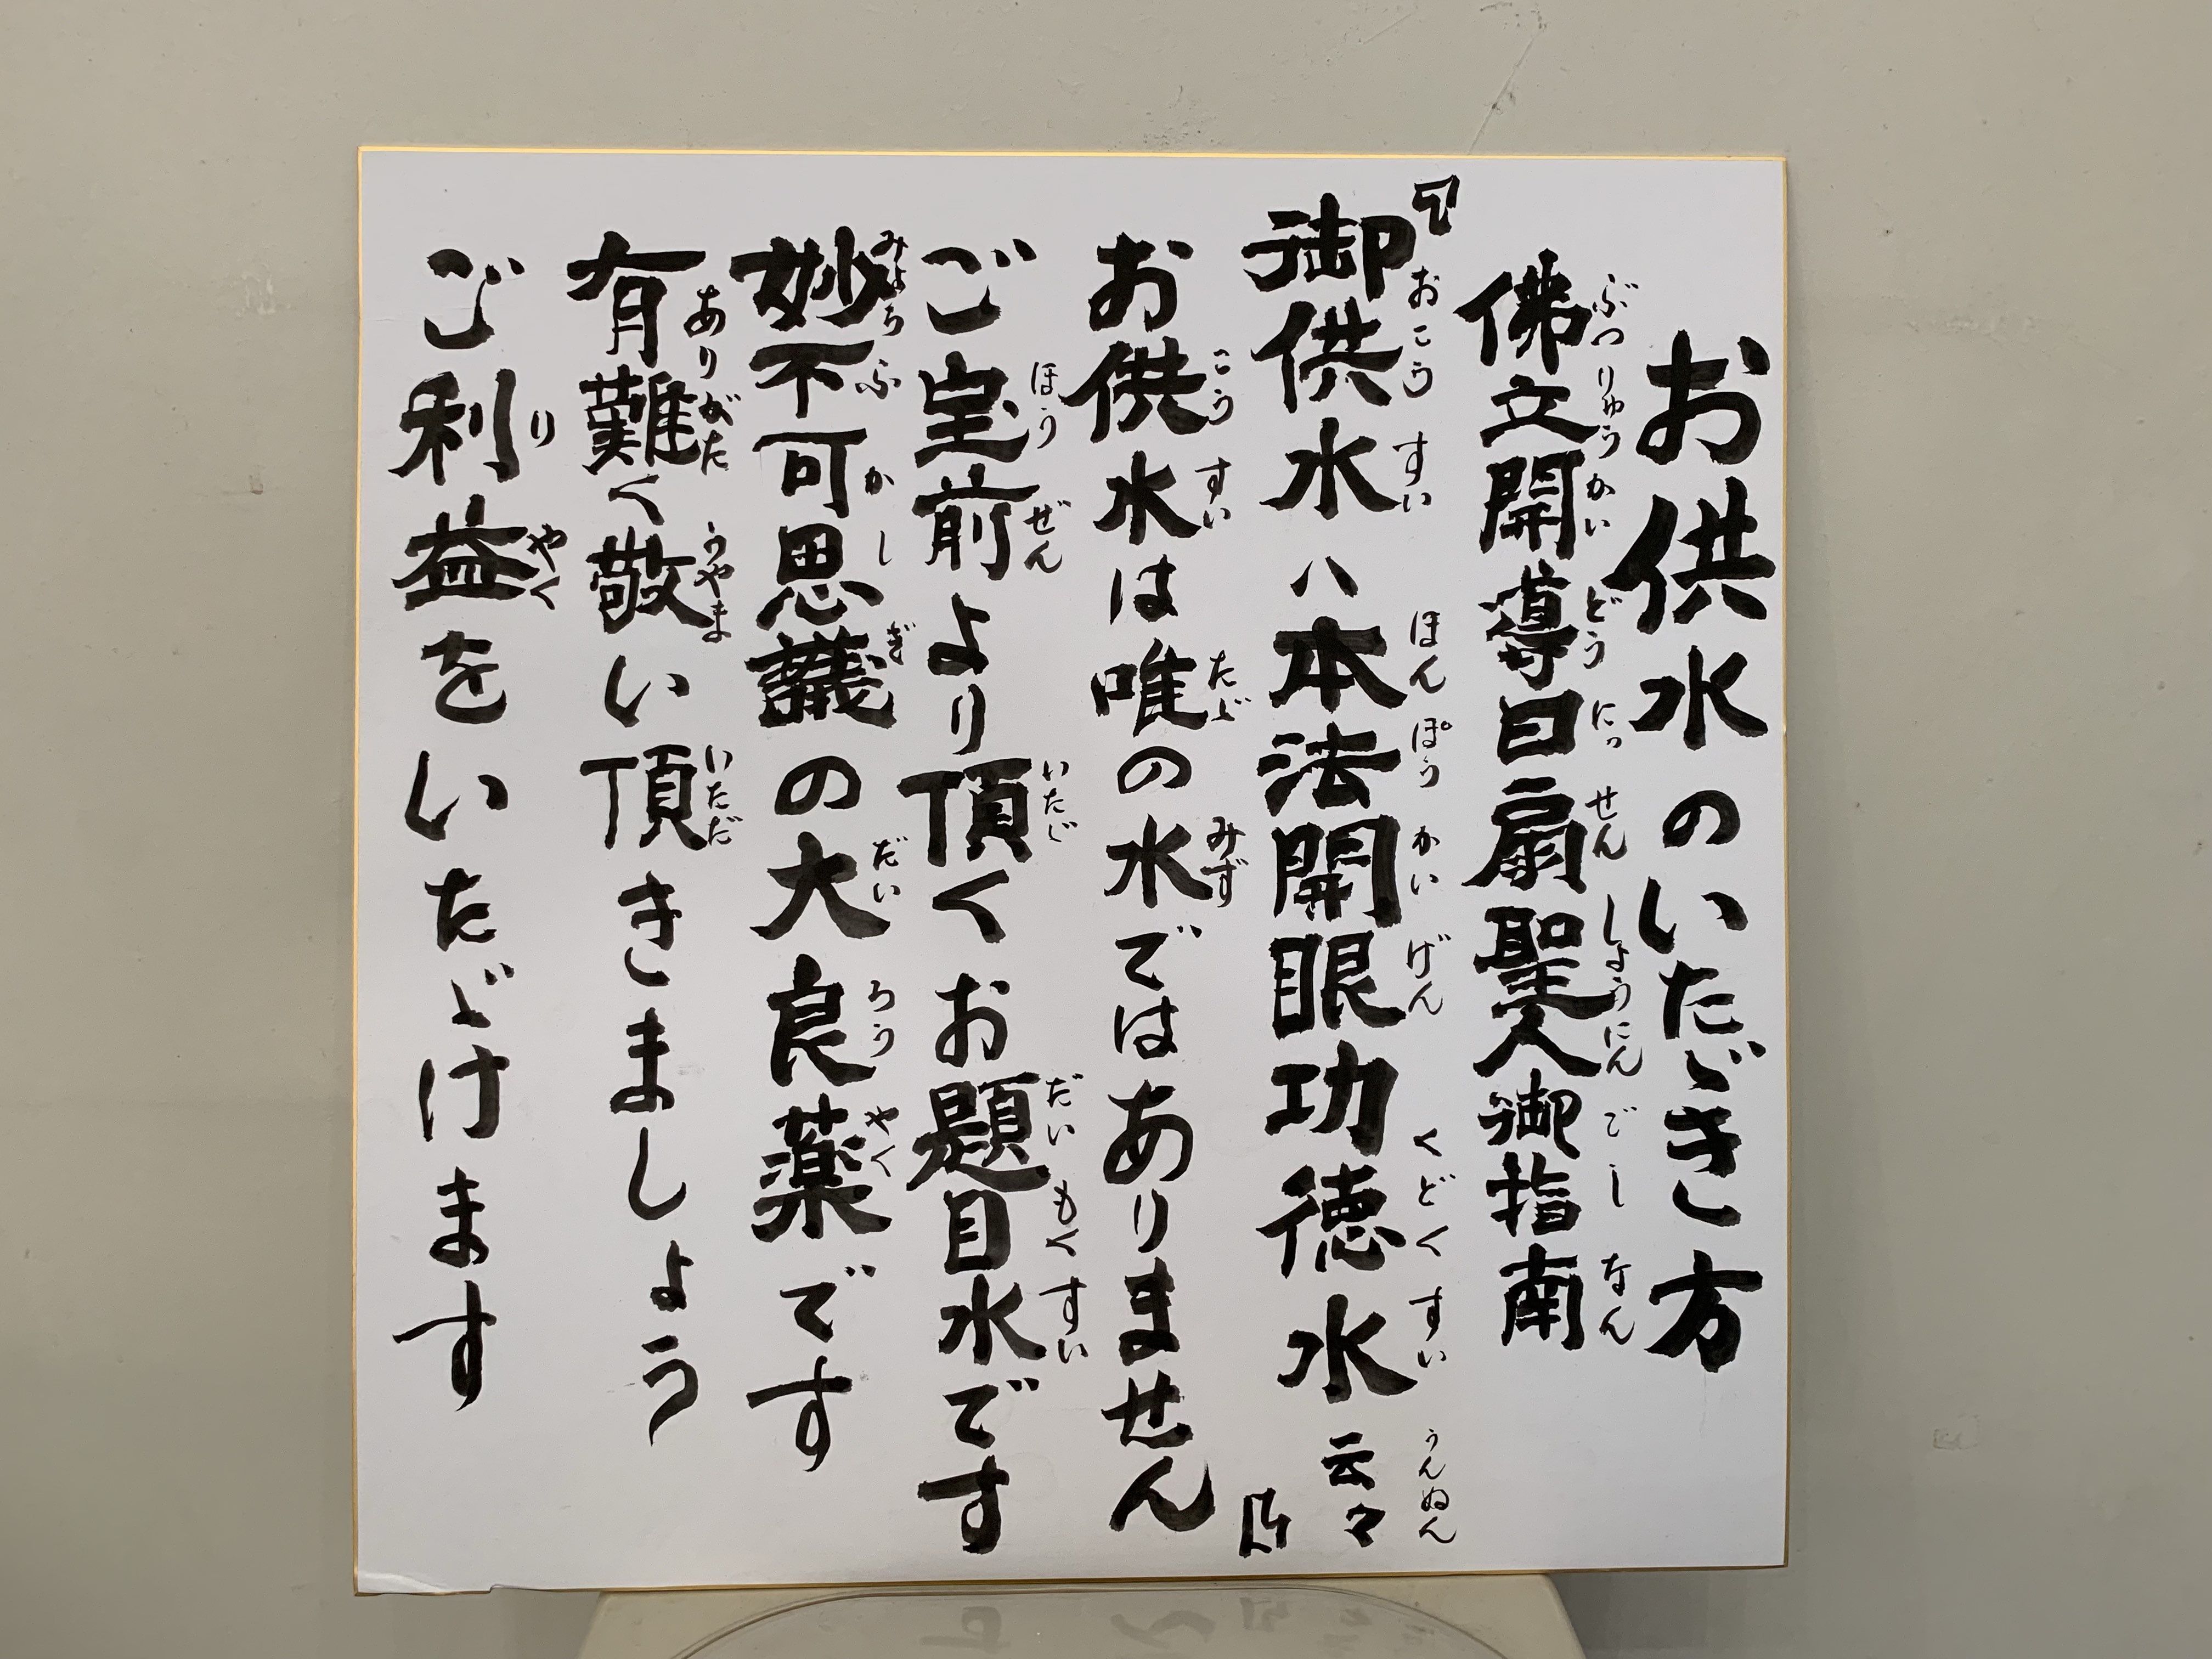 お供水のいたゞき方
佛立開導日扇聖人御指南
『御供水ハ本法開眼功徳水云々』
お供水は唯の水ではありません
ご宝前より頂くお題目水です
妙不可思議の大良薬です
有難く敬い頂きましょう
ご利益をいたゞけます